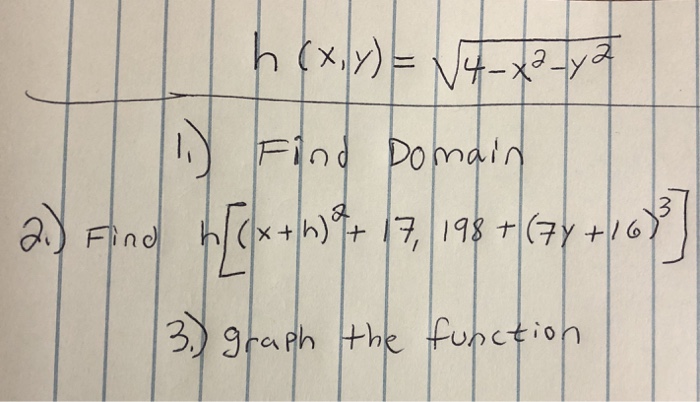 h (x,y) = √4-x²-y²
1.) Find Domain
2.) Find h[(x+h)²+ 17, 198 + (7y +16)³]
3.) graph the function